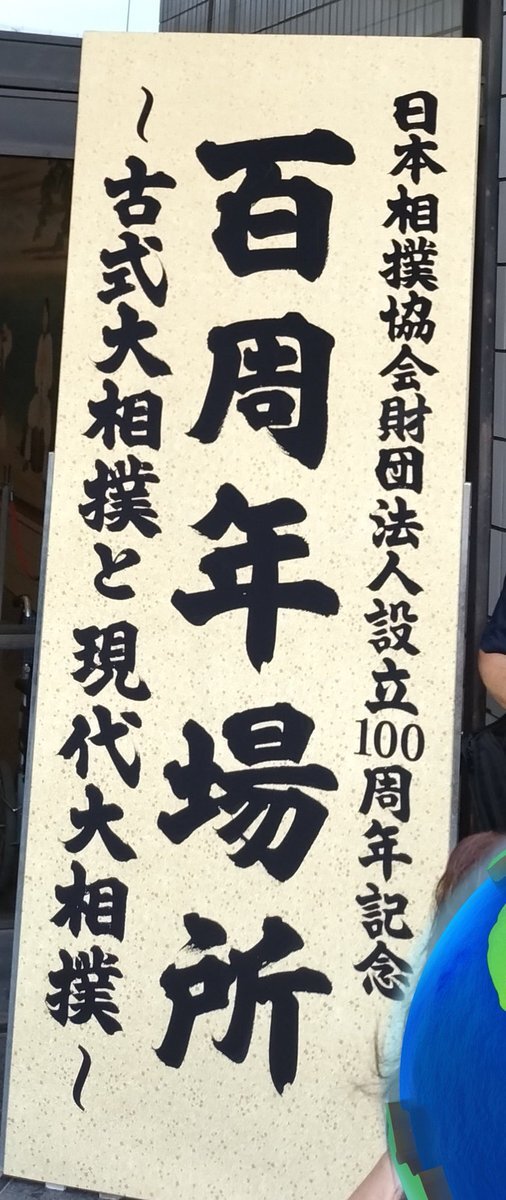 日本相撲協会財団法人設立100周年記念
百周年場所
～古式大相撲と現代大相撲～